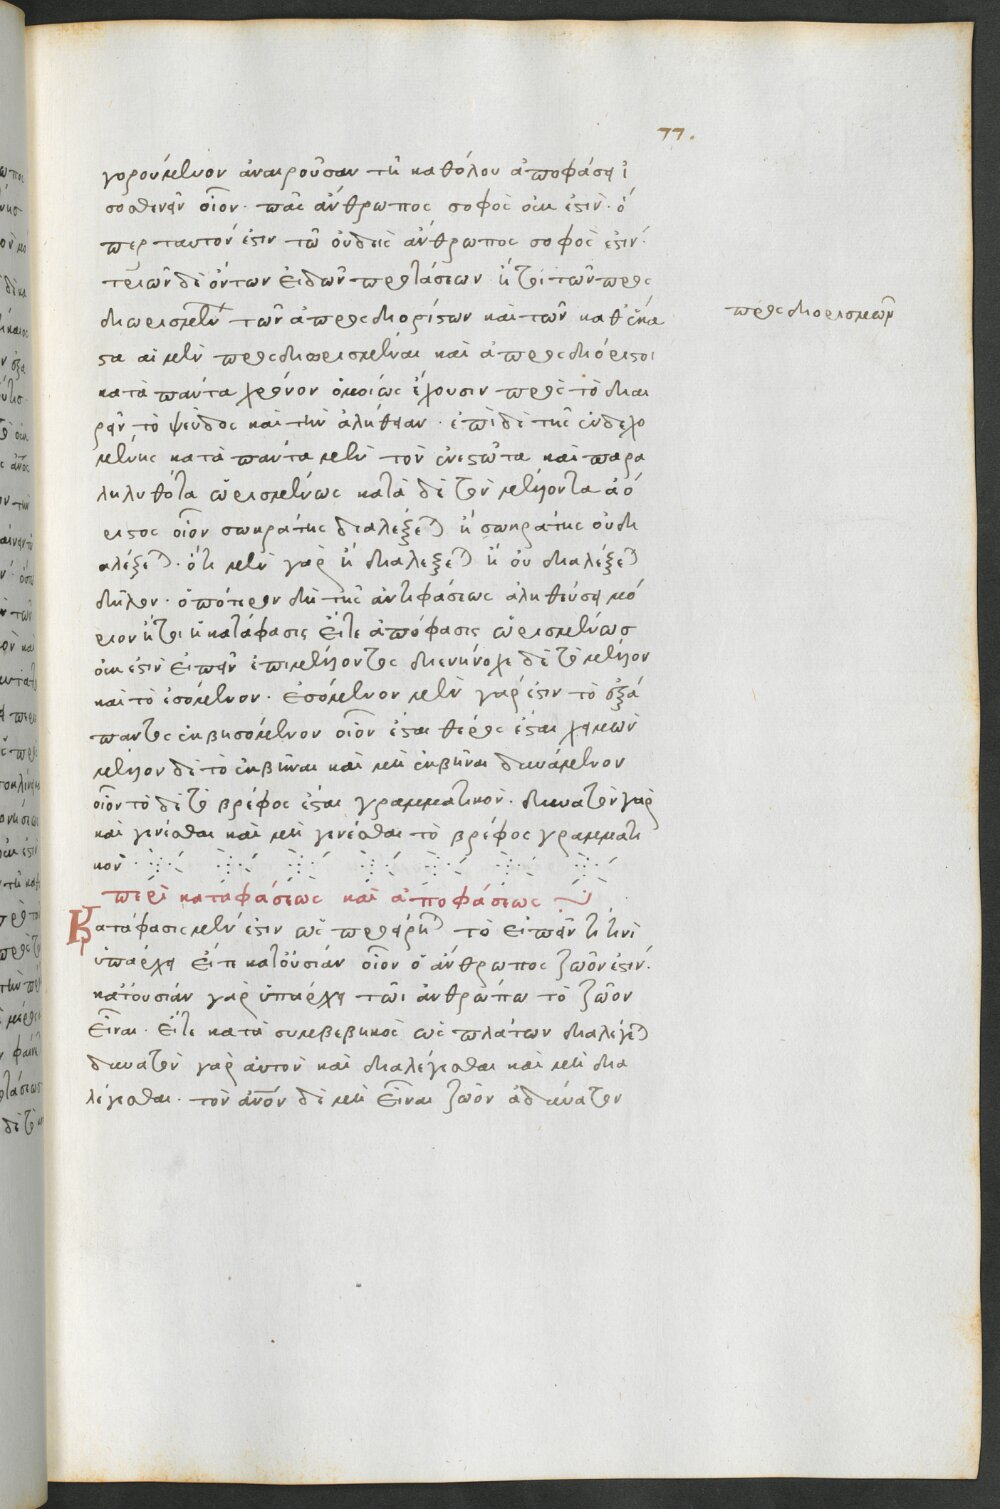 77.
γορούμενον ἀναιροῦσαν τῇ καθόλου ἀποφάσει ἰ
σοσθενεῖν οἷον· πᾶς ἄνθρωπος σοφὸς οὐκ ἐστιν· ὅ
περ ταυτόν ἐστιν τῶ οὐδεὶς ἄνθρωπος σοφός ἐστιν·
τριῶν δὲ ὄντων εἰδῶν προτάσεων ἤτοι τῶν προσ
διωρισμένων τῶν ἀπροσδιορίστων καὶ τῶν καθ ἕκα
στα αἱ μὲν προσδιωρισμέναι καὶ ἀπροσδιόριστοι
κατὰ πάντα χρόνον ὁμοίως ἔχουσιν πρὸς τὸ διαι
ρεῖν τὸ ψεῦδος καὶ τὴν ἀλήθειαν· ἐπὶ δὲ τῆς ἐνδεχο
μένης κατὰ πάντα μὲν τὸν ἐνεστῶτα καὶ παρε
ληλυθότα ὡρισμένως κατὰ δὲ τὸν μέλλοντα ἀό
ριστος οἷον σωκράτης διαλέξεται ἢ σωκράτης οὐ δι
αλέξεται· ὅτι μὲν γὰρ ἢ διαλέξεται ἢ οὐ διαλέξεται
δῆλον· ὁπότερον δὴ τῆς ἀντιφάσεως ἀληθεύσει μό
ριον ἤτοι ἡ κατάφασις εἴτε ἀπόφασις ὡρισμένως
οὐκ ἐστιν εἰπεῖν ἐπὶ μέλλοντος διενήνοχε δὲ τὸ μέλλον
καὶ τὸ ἐσόμενον· ἐσόμενον μὲν γάρ ἐστιν τὸ ἐξά
παντος ἐκβησόμενον οἷον ἔσται θέρος ἔσται χειμών
μέλλον δὲ τὸ ἐκβῆναι καὶ μὴ ἐκβῆναι δυνάμενον
οἷον τὸ δὲ τὸ βρέφος ἔσται γραμματικόν· δυνατὸν γὰρ
καὶ γενέσθαι καὶ μὴ γενέσθαι τὸ βρέφος γραμματι
κόν·
περὶ καταφάσεως καὶ ἀποφάσεως
Κατάφασις μέν ἐστιν ὡς προείρηται τὸ εἰπεῖν τί τινὶ
ὑπάρχει εἴτε κατ οὐσίαν οἷον ὁ ἄνθρωπος ζῶόν ἐστιν·
κατ οὐσίαν γὰρ ὑπάρχει τῶι ἀνθρώπω τὸ ζῶον
εἶναι· εἴτε κατὰ συμβεβηκὸς ὡς πλάτων διαλέγεται
δυνατὸν γὰρ αὐτὸν καὶ διαλέγεσθαι καὶ μὴ δια
λέγεσθαι· τὸν ἄνον δὲ μὴ εἶναι ζῶον ἀδύνατον
προσδιορισμῶν